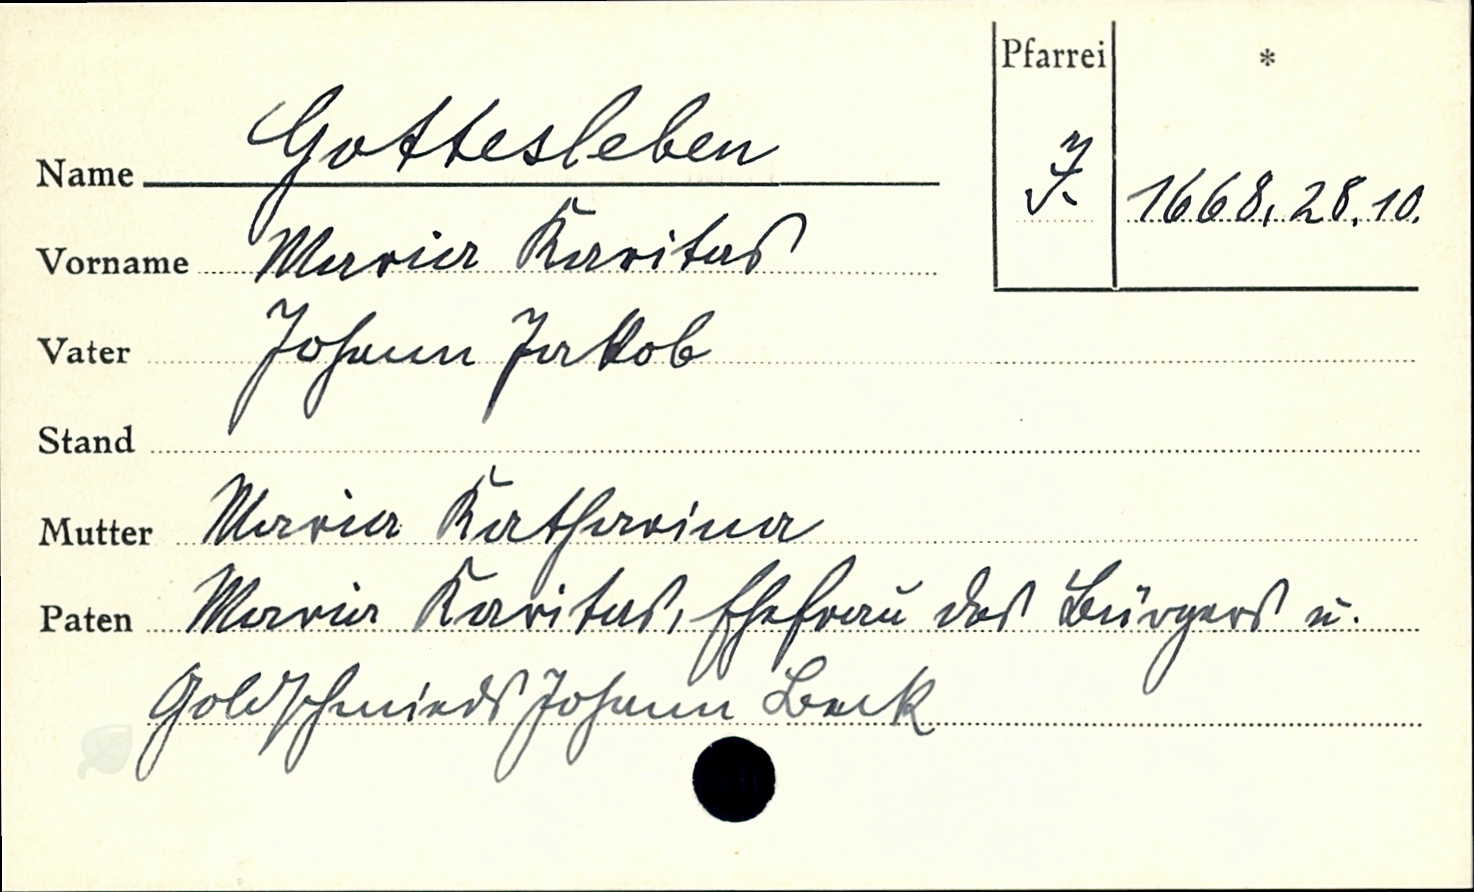 Pfarrei *
Name Gottesleben
J. 1668, 28.10.
Vorname Maria Karitas
Vater Johann Jakob
Stand
Mutter Maria Katharina
Paten Maria Karitas, Ehefrau des Bürgers u.
Goldschmieds Johann Beck